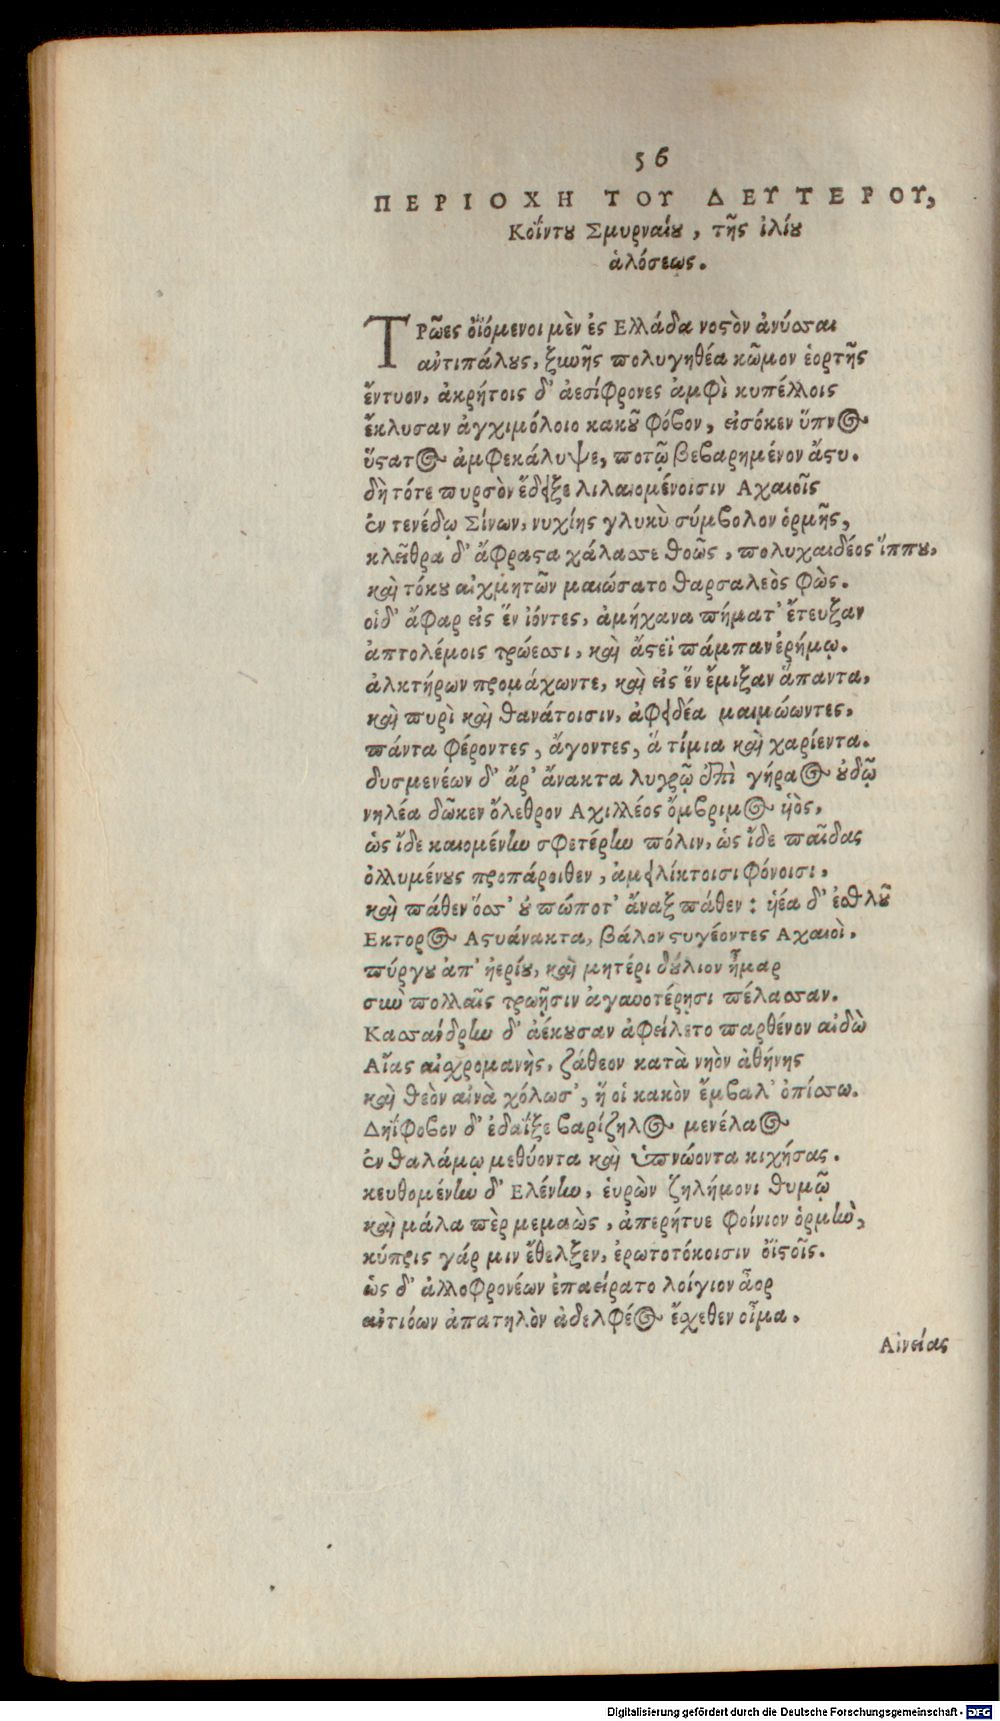 56
ΠΕΡΙΟΧΗ ΤΟΥ ΔΕΥΤΕΡΟΥ,
Κοΐντου Σμυρναίου, τῆς ἰλίου
ἁλόσεως.
ΤΡῶες ὀϊόμενοι μὲν ἐς Ελλάδα νοστὸν ἀνύσσαι
ἀντιπάλους, ξυνῆς πολυγηθέα κῶμον ἑορτῆς
ἔντυον, ἀκρήτοις δ' ἀεσίφρονες ἀμφὶ κυπέλλοις
ἔκλυσαν ἀγχιμόλοιο κακοῦ φόβον, εἰσόκεν ὕπνος
ὕστατος ἀμφεκάλυψε, ποτῷ βεβαρημένον ἄστυ.
δὴ τότε πυρσὸν ἔδειξε λιλαιομένοισιν Αχαιοῖς
ἐν τενέδῳ Σίνων, νυχίης γλυκὺ σύμβολον ὁρμῆς,
κλεῖθρα δ' ἄφραστα χάλασσε θοῶς, πολυχανδέος ἵππου,
καὶ τόκου αἰχμητῶν μαιώσατο θαρσαλεὸς φὼς.
οἱ δ' ἄφαρ εἰς ἕν ἰόντες, ἀμήχανα πήματ' ἔτευξαν
ἀπτολέμοις τρώεσσι, καὶ ἄστεϊ πάμπαν ἐρήμῳ.
ἀλκτήρων προμάχωντε, καὶ εἰς ἕν ἔμιξαν ἅπαντα,
καὶ πυρὶ καὶ θανάτοισιν, ἀφειδέα μαιμώωντες,
πάντα φέροντες, ἄγοντες, ἅ τίμια καὶ χαρίεντα.
δυσμενέων δ' ἄρ' ἄνακτα λυγρῷ ἐπὶ γήραος οὐδῷ
νηλέα δῶκεν ὄλεθρον Αχιλλέος ὄμβριμος ἡὸς,
ὡς ἴδε καιομένην σφετέρην πόλιν, ὡς ἴδε παῖδας
ὀλλυμένους προπάροιθεν, ἀμειλίκτοισι φόνοισι,
καὶ πάθεν ὅσσ' οὐ πώποτ' ἄναξ πάθεν: ἡέα δ' ἐσθλοῦ
Εκτορος Αστυάνακτα, βάλον στυγέοντες Αχαιοὶ.
πύργου ἀπ' ἠερίου, καὶ μητέρι δούλιον ἦμαρ
σὺν πολλαῖς τρωῆσιν ἀγαυοτέρησι πέλασσαν.
Κασσάνδρην δ' ἀέκουσαν ἀφείλετο παρθένον αἰδὼ
Αἴας αἰσχρομανὴς, ζάθεον κατὰ νηὸν ἀθήνης
καὶ θεὸν αἰνὰ χόλωσ', ἥ οἱ κακὸν ἔμβαλ' ὀπίσσω.
Δηΐφοβον δ' ἐδαΐξε βαρίζηλος μενέλαος
ἐν θαλάμῳ μεθύοντα καὶ ὑπνώοντα κιχήσας.
κευθομένην δ' Ελένην, εὑρὼν ζηλήμονι θυμῷ
καὶ μάλα πὲρ μεμαὼς, ἀπερήτυε φοίνιον ὁρμὴν,
κύπρις γάρ μιν ἔθελξεν, ἐρωτοτόκοισιν ὀϊστοῖς.
ὡς δ' ἀλλοφρονέων ἐπαείρατο λοίγιον ἆορ
ἀντιόων ἀπατηλὸν ἀδελφέος ἔσχεθεν οἶμα.
Αἰνείας
Digitalisierung gefördert durch die Deutsche Forschungsgemeinschaft - DFG